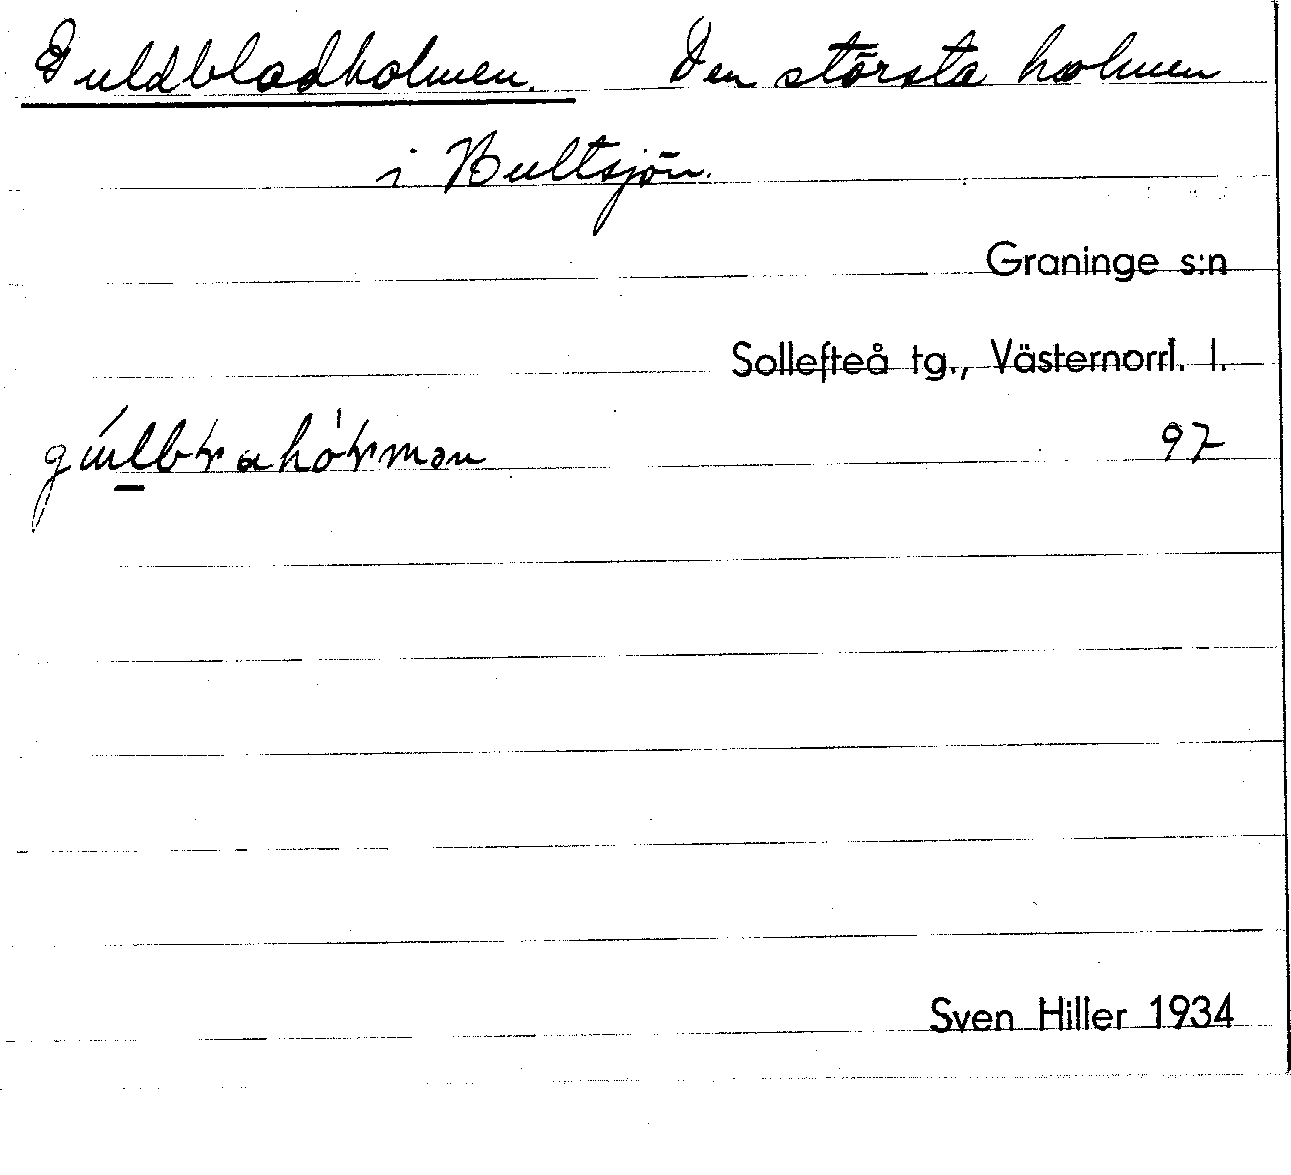 Guldbladholmen. Den största holmen
i Bultsjön.
Graninge s:n
Sollefteå tg., Västernorrl. l.
97
Sven Hiller 1934